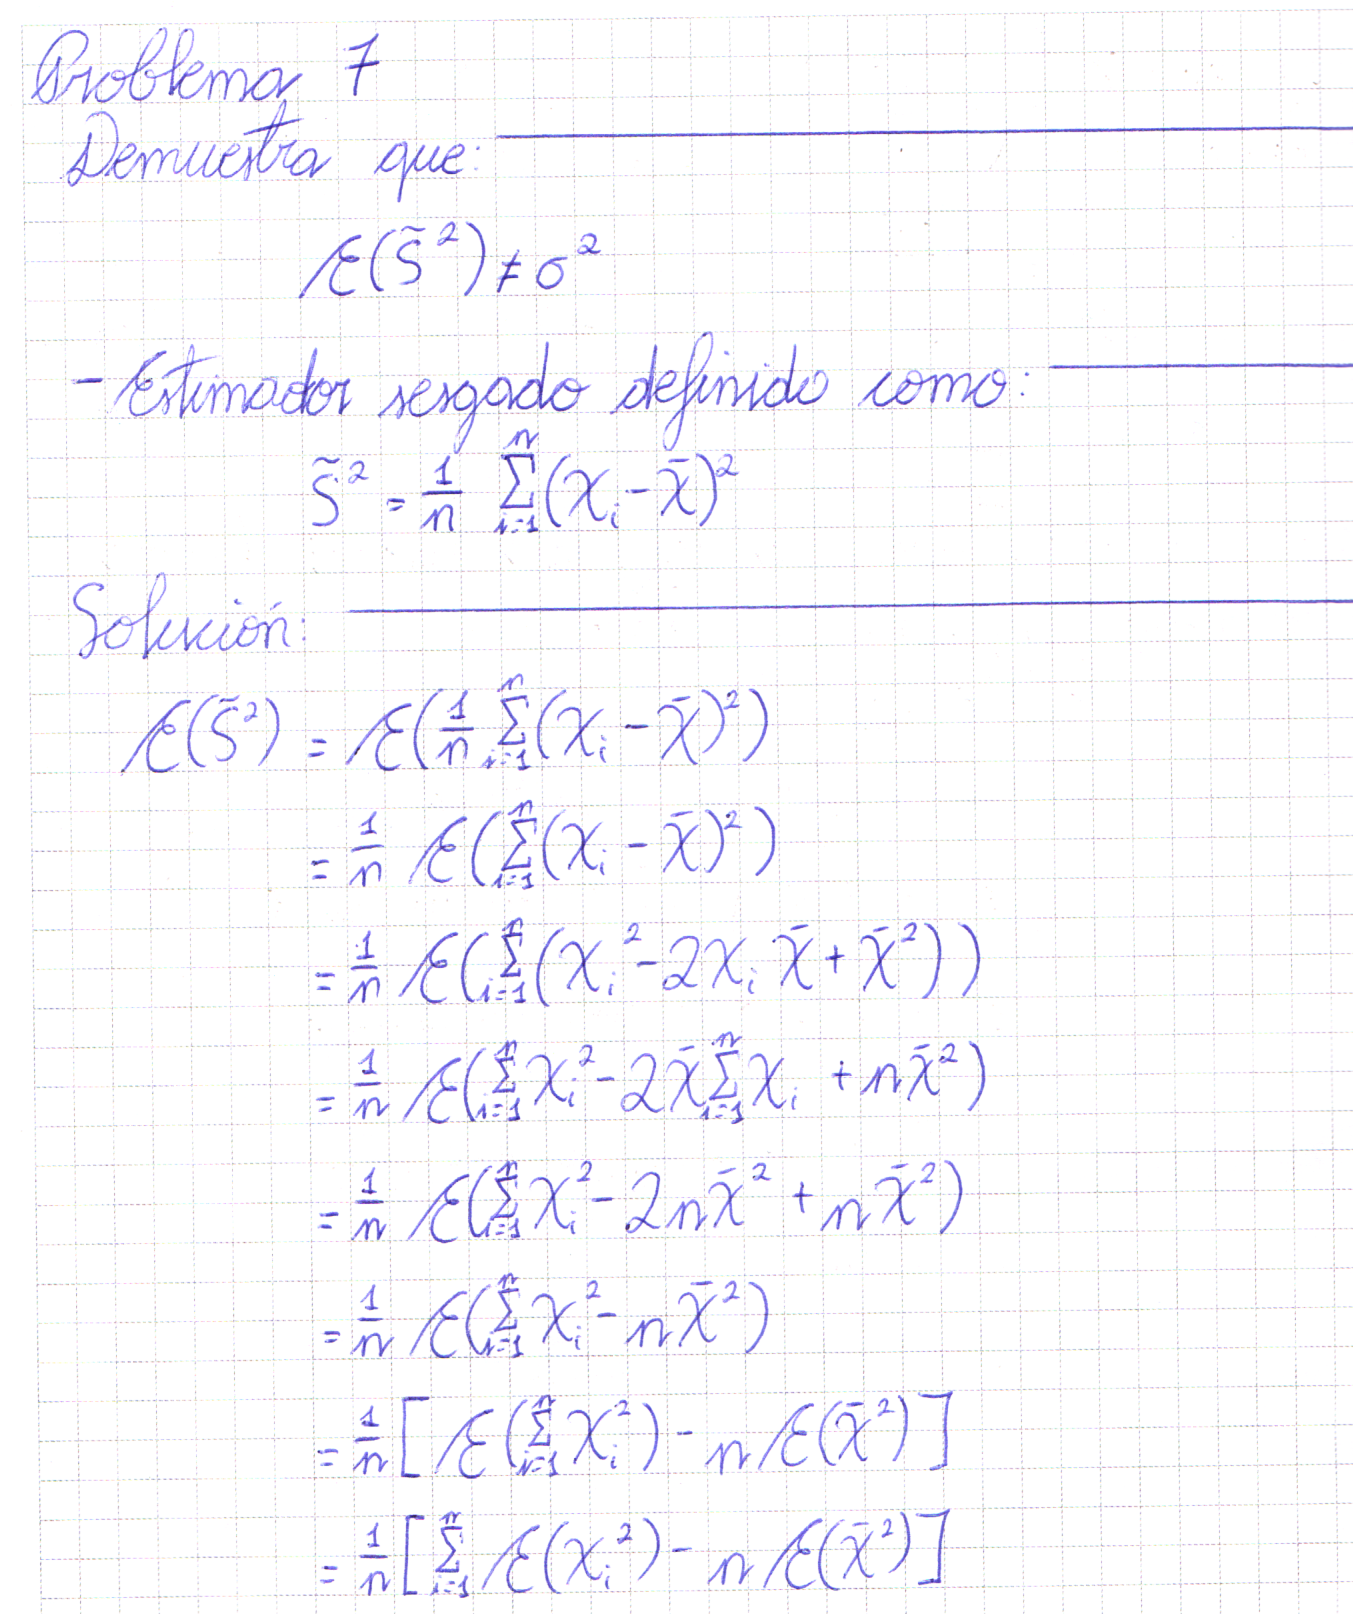 Problema 7
Demuestra que:
E(S̃²) ≠ σ²
- Estimador sesgado definido como:
S̃² = 1/n Σ_{i=1}^{n} (X_i - X̄)²
Solución:
E(S̃²) = E(1/n Σ_{i=1}^{n} (X_i - X̄)²)
= 1/n E(Σ_{i=1}^{n} (X_i - X̄)²)
= 1/n E(Σ_{i=1}^{n} (X_i² - 2X_i X̄ + X̄²))
= 1/n E(Σ_{i=1}^{n} X_i² - 2X̄ Σ_{i=1}^{n} X_i + nX̄²)
= 1/n E(Σ_{i=1}^{n} X_i² - 2nX̄² + nX̄²)
= 1/n E(Σ_{i=1}^{n} X_i² - nX̄²)
= 1/n [E(Σ_{i=1}^{n} X_i²) - nE(X̄²)]
= 1/n [Σ_{i=1}^{n} E(X_i²) - nE(X̄²)]